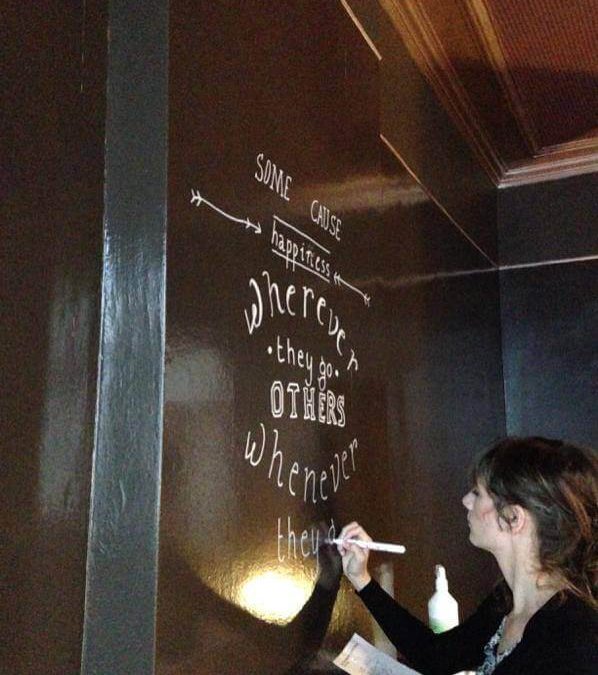 SOME CAUSE
happiness
Wherever
• they go •
OTHERS
Whenever
they